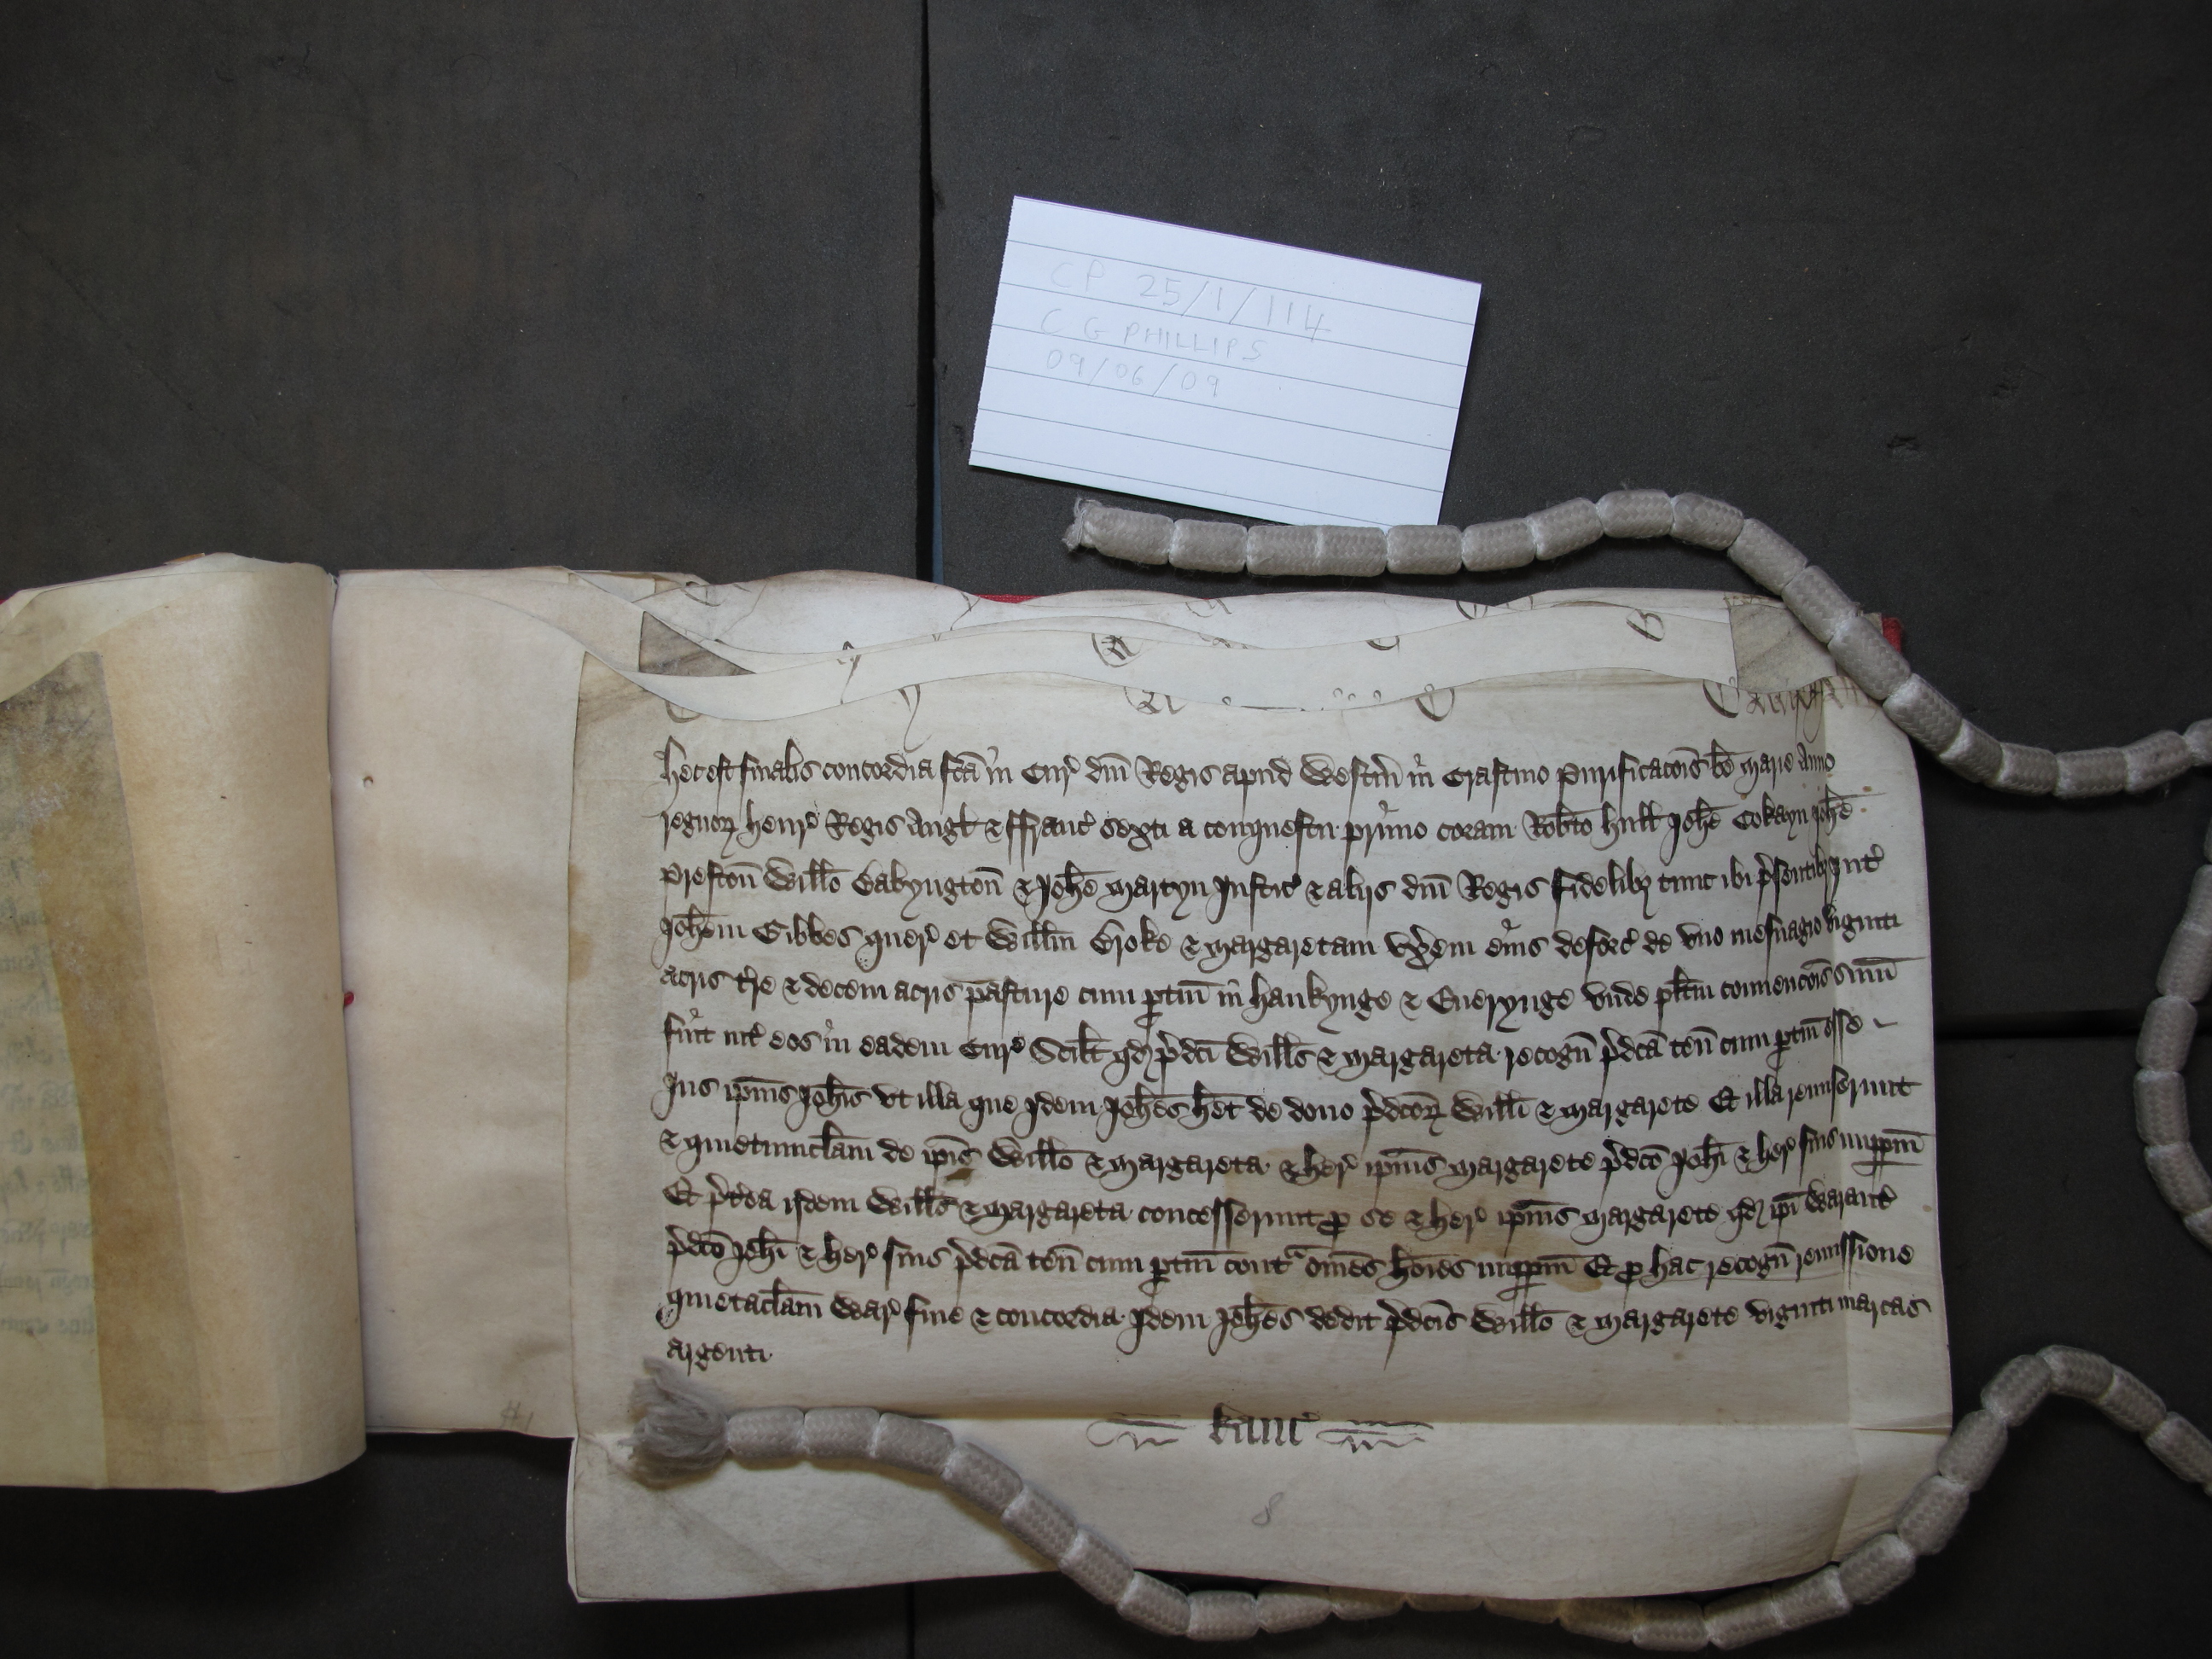 CP 25/1/114
C G PHILLIPS
09/06/09
Hec est finalis concordia fc̄a in Cur̉ dn̄i Regis apud Westm̄ in Crastino Purificac̄ois bē Marie Anno
regnoꝝ Henr̉ Regis Angl̄ & Ffranc̉ sexti a conquestu primo coram Rob̄to Hull̄ Joh̄e Cokayn Joh̄e
Preston̄ Will̄o Babyngton̄ & Joh̄e Martyn Justic̉ & aliis dn̄i Regis fidelibꝫ tunc ibi p̉sentibꝫ Int̉
Joh̄em Gibbes quer̉ et Will̄m Broke & Margaretam vx̉em eius deforc̉ de vno mesuagio viginti
acris t̉re & decem acris pasture cum p̱tin̄ in Haukynge & Euerynge vnde pl̄itm conuencōis sum̄
fuit int̉ eos in eadem Cur̉ Scil̄t qd̄ p̉dc̄i Will̄s & Margareta recogn̄ p̉dc̄a ten̄ cum p̱tin̄ esse
Jus ip̄ius Joh̄is vt illa que Idem Joh̄es h̄et de dono p̉dc̄oꝝ Will̄i & Margarete Et illa remiserunt
& quietumclam̄ de ip̄is Will̄o & Margareta & her̉ ip̄ius Margarete p̉dc̄o Joh̄i & her̉ suis imp̱p̱m̄
Et p̉t̉ea ijdem Will̄s & Margareta concesserunt ꝓ se & her̉ ip̄ius Margarete qd̄ ip̄i Warant̉
p̉dc̄o Joh̄i & her̉ suis p̉dc̄a ten̄ cum p̱tin̄ cont̃ om̄es hōies imp̱p̱m̄ Et ꝓ hac recogn̄ remissione
quietaclam̄ War̉ fine & concordia Idem Joh̄es dedit p̉dc̄is Will̄o & Margarete viginti marcas
argenti
Kanc̉
8